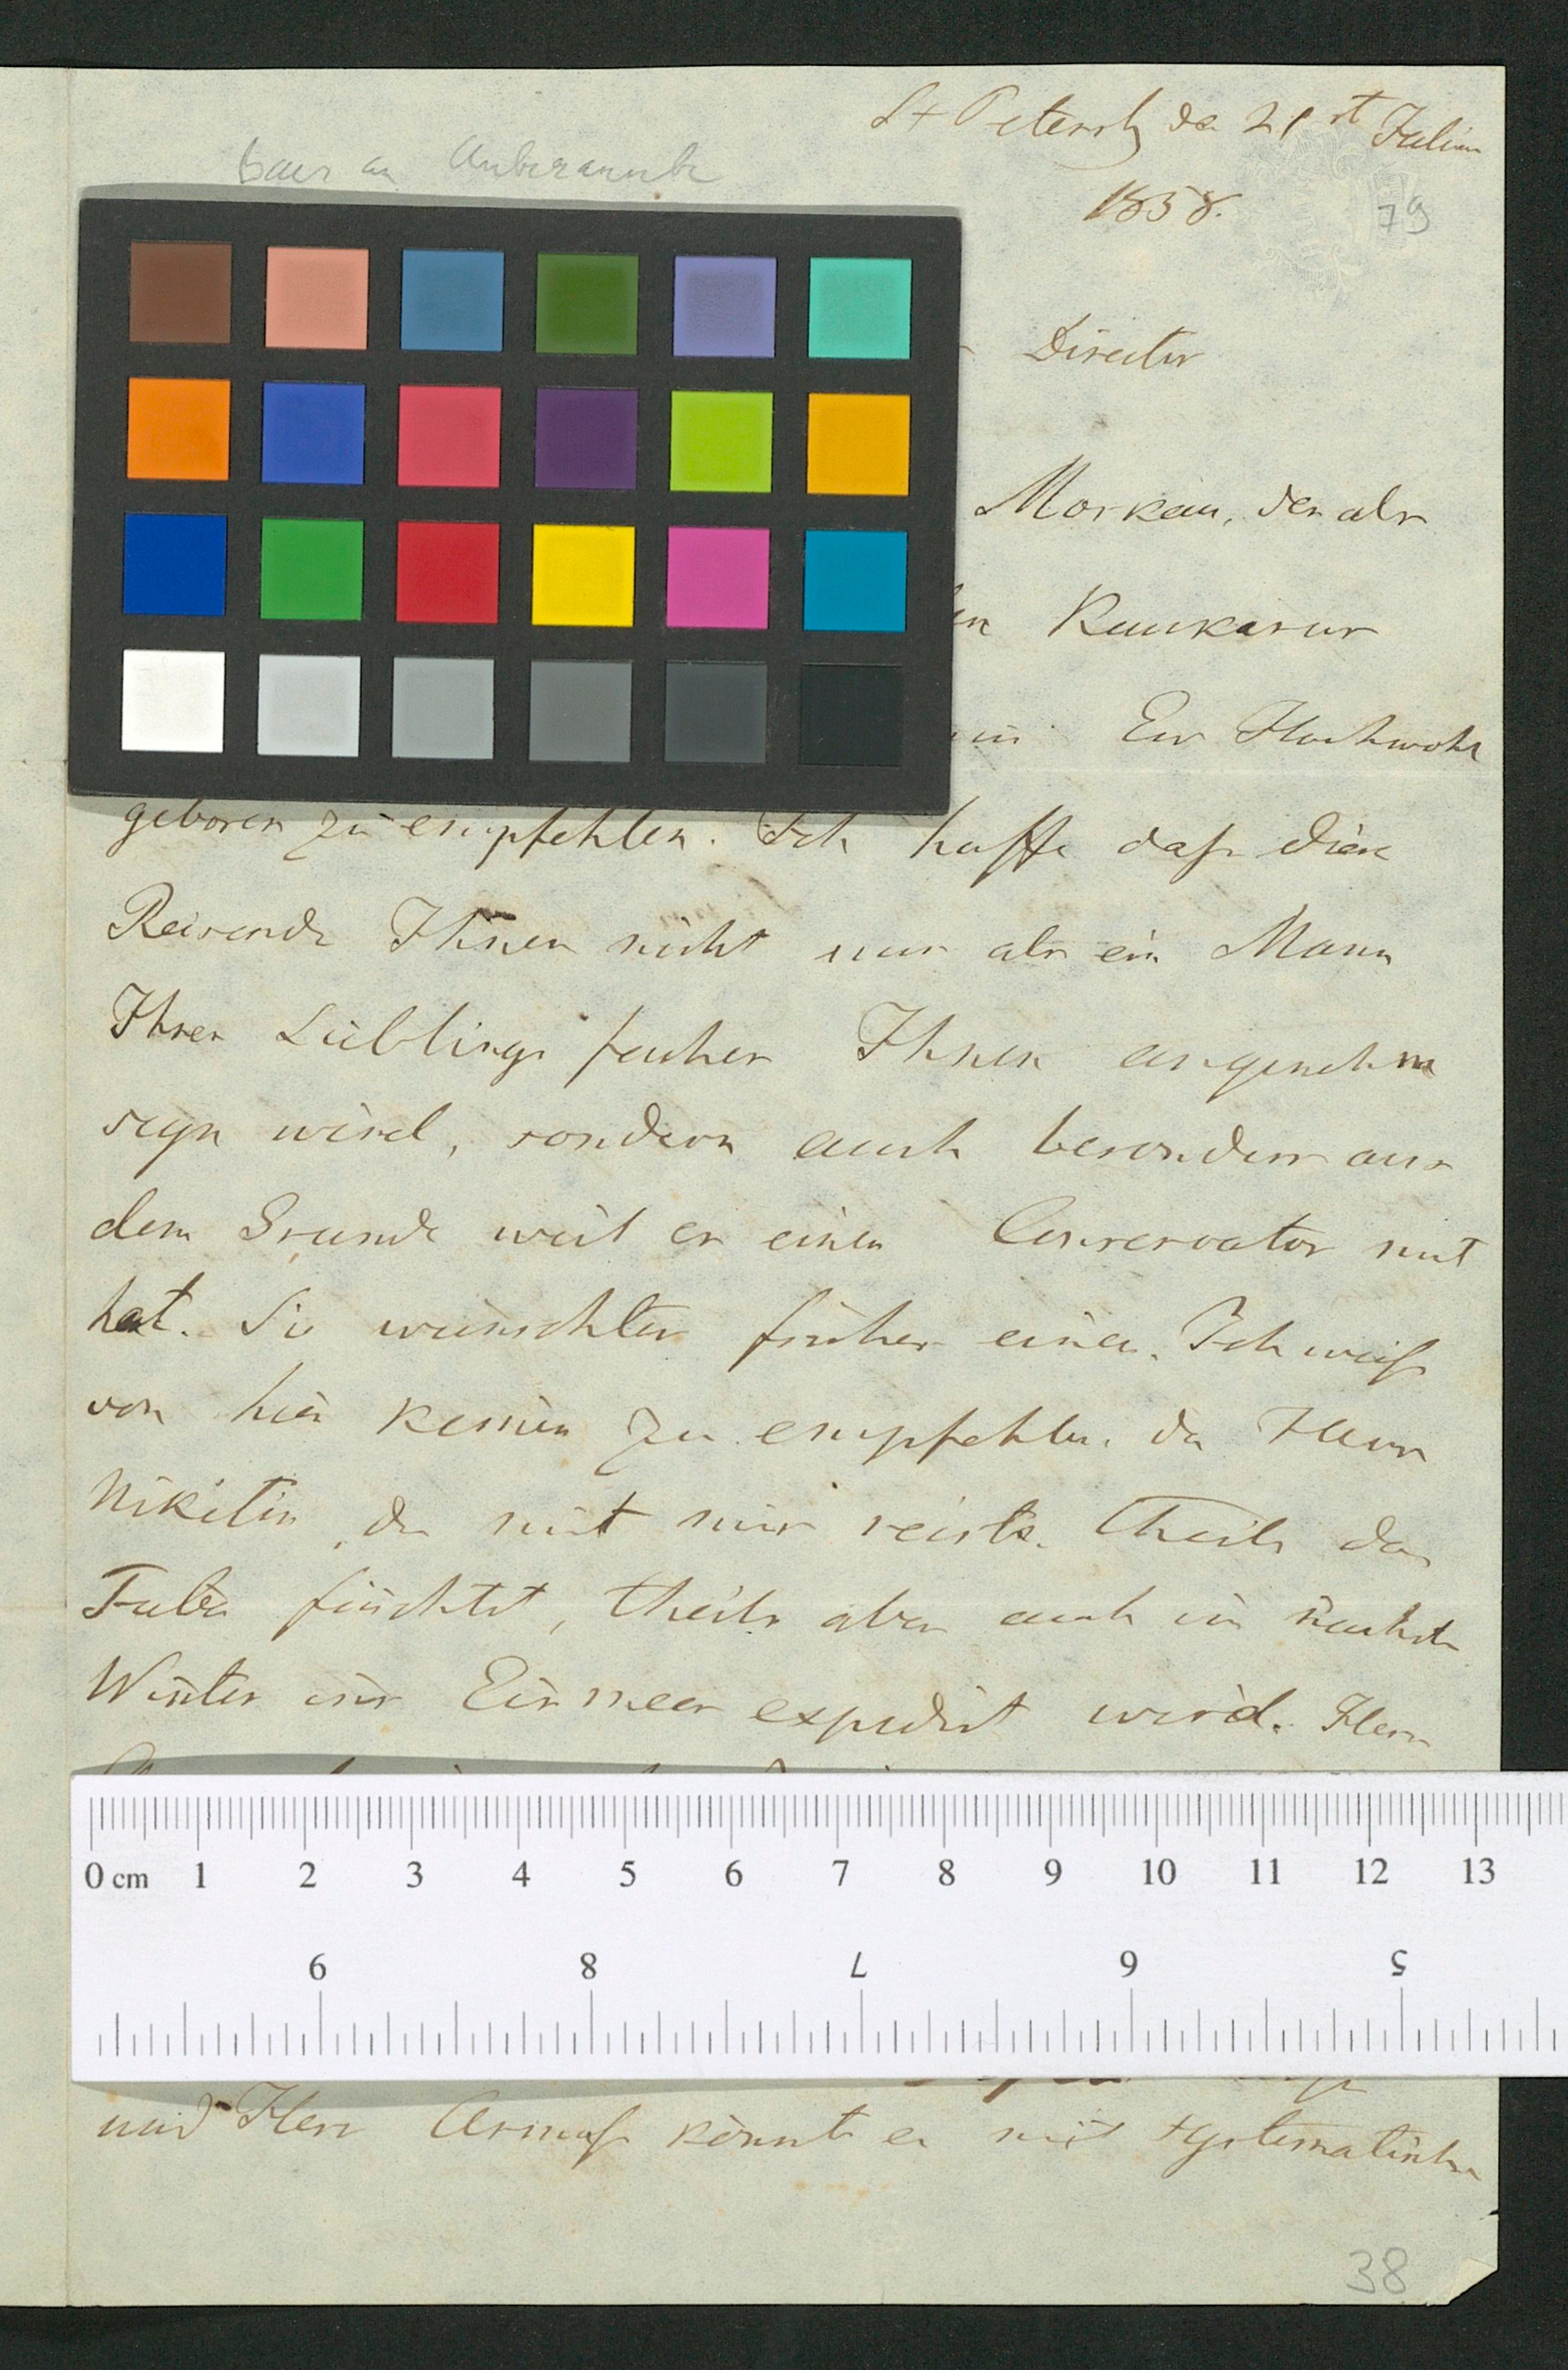 St Petersb den 21st Julius
1858.
Baer an Unbekannte
79
Director
Moskau, der als
Kaukasus
Ew Hochwohl
geboren zu empfehlen. Ich hoffe daß diese
Reisende Ihnen nicht nur als ein Mann
Ihrer Lieblings fächer Ihnen angenehm
seyn wird, sondern auch besonders aus
dem Grunde weil er einen Conservator mit
hat. Sie wünschten früher einen. Ich weiß
von hier keinen zu empfehlen, da Herr
Nikitin, der mit mir reiste, theils das
Fieber fürchtet, theils aber auch im nächsten
Winter ins Eismeer expedirt wird. Herr
0 cm 1 2 3 4 5 6 7 8 9 10 11 12 13
9 8 7 6 5
und Herr könnte er mit systematischen
38